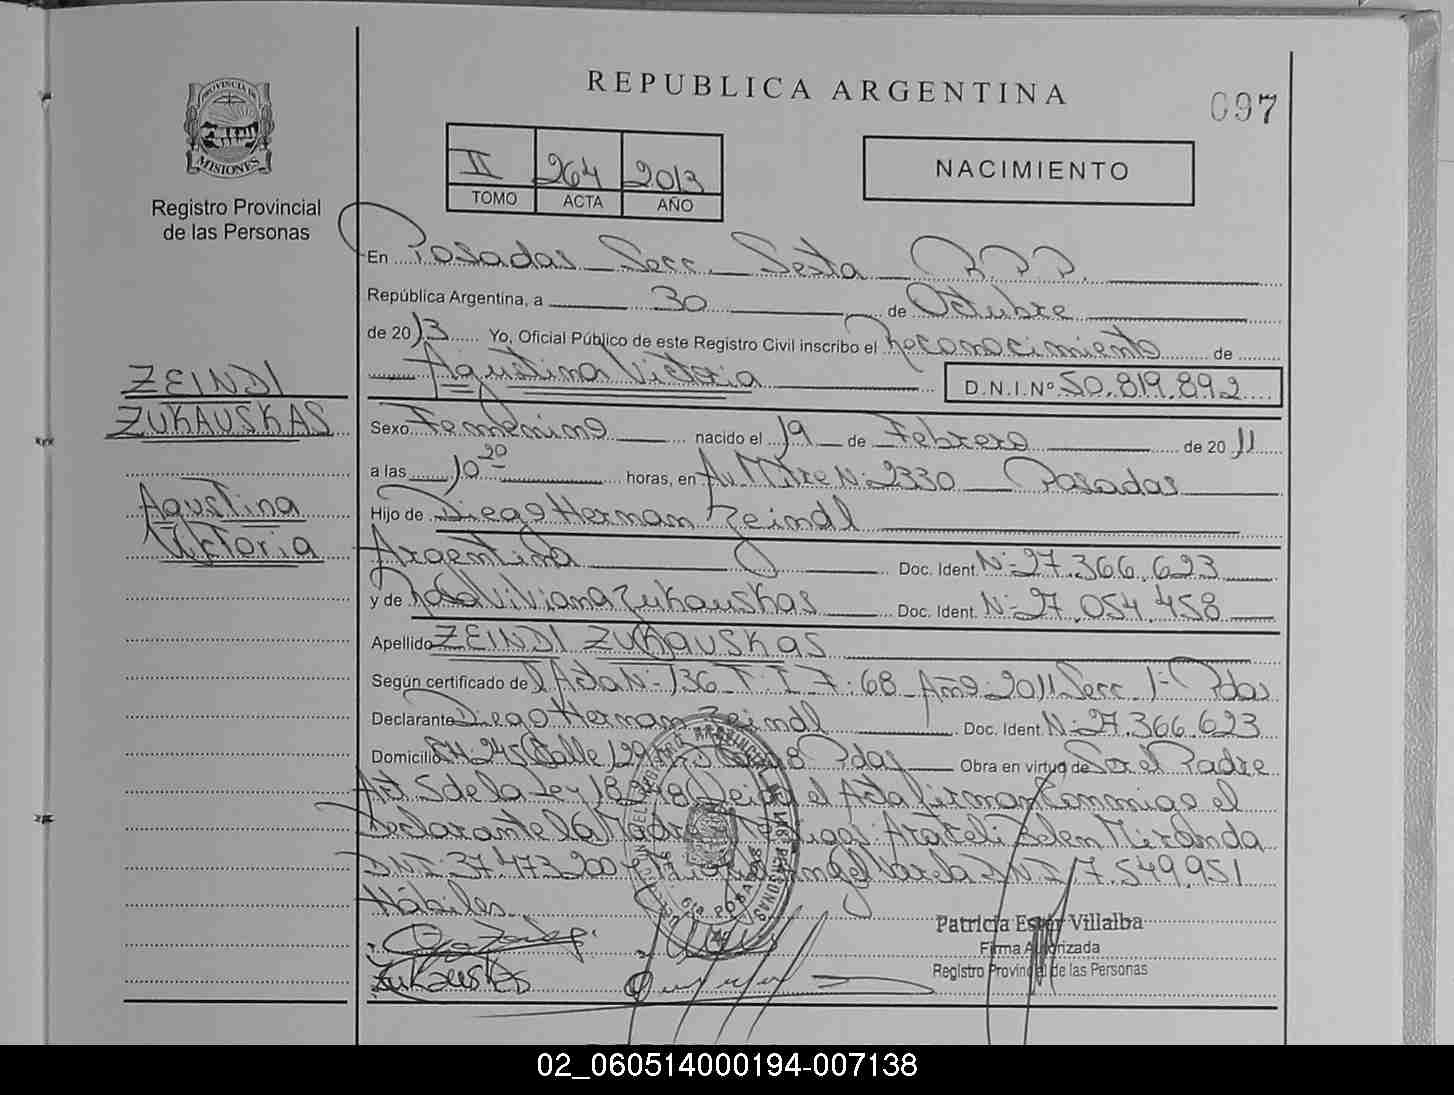 REPUBLICA ARGENTINA
097
PROVINCIA DE
MISIONES
Registro Provincial
de las Personas
II 264 2013
TOMO ACTA AÑO
NACIMIENTO
En Posadas Secc. Sexta R.P.P.
República Argentina, a 30 de Octubre
de 2013 Yo, Oficial Público de este Registro Civil inscribo el Reconocimiento de
Agustina Victoria D.N.I.Nº 50.819.892
ZEINDL
ZUKAUSKAS
Agustina
Victoria
Sexo Femenino nacido el 19 de Febrero de 2011
a las 10 20 horas, en Av. Mitre Nº 2330 Posadas
Hijo de Diego Hernan Zeindl
Argentina Doc. Ident. Nº 27.366.623
y de Rosa Viviana Zukauskas Doc. Ident. Nº 27.054.458
Apellido ZEINDL ZUKAUSKAS
Según certificado de Acta Nº 136 T. I F. 68 Año 2011 Secc. 1ª Pdas
Declarante Diego Hernan Zeindl Doc. Ident. Nº 27.366.623
Domicilio CH. 245 Calle 129 Pdas Obra en virtud de Ser el Padre
Art 5 de la Ley 18.248 Leida el Acta firman conmigo el
Declarante la Madre y Testigos: Arakeli Belen Miranda
DNI 37.473.200 y Angel Varela DNI 7.549.951
Hábiles.
Zukauskas
Patricia Ester Villalba
Firma Autorizada
Registro Provincial de las Personas
02_060514000194-007138